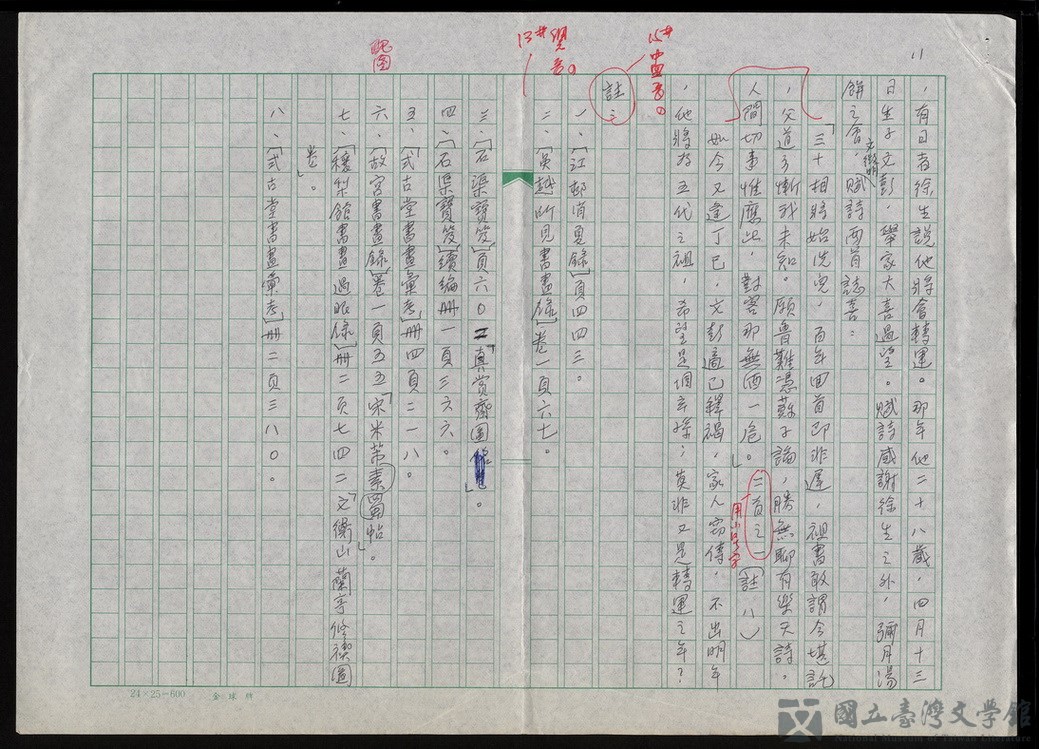 11
，有日者徐生說他將會轉運。那年他二十八歲，四月十三
日生子文彭，舉家大喜過望。賦詩感謝徐生之外，彌月湯
餅之會，文徵明賦詩兩首誌喜：
「三十相將始洗兒，百年回首即非遲，祖書敢謂今堪託
，父道方慚我未知。願魯難憑蘇子論，勝無聊有樂天詩。
人間切事惟應此，對客那無酒一卮。」二首之一（註八）
用小星字
如今又逢丁巳，文彭適已釋褐，家人竊傳，不出明年
，他將為五代之祖，希望是個玄孫；莫非又是轉運之年？
15# 中黑
註：
一、「江邨消夏錄」頁四四三。
二、「吳越所見書畫錄」卷一頁六七。
13#
三、「石渠寶笈」頁六〇二「真賞齋圖」。
四、「石渠寶笈」續編冊一頁三六六。
五、「式古堂書畫彙考」冊四頁二一八。
六、「故宮書畫錄」卷一頁五五「宋米芾帖」。
七、「穰梨館書畫過眼錄」冊二頁七四二「文衡山蘭亭修禊圖
卷」。
八、「式古堂書畫彙考」冊二頁三八〇。
24×25=600
國立臺灣文學館
National Museum of Taiwan Literature